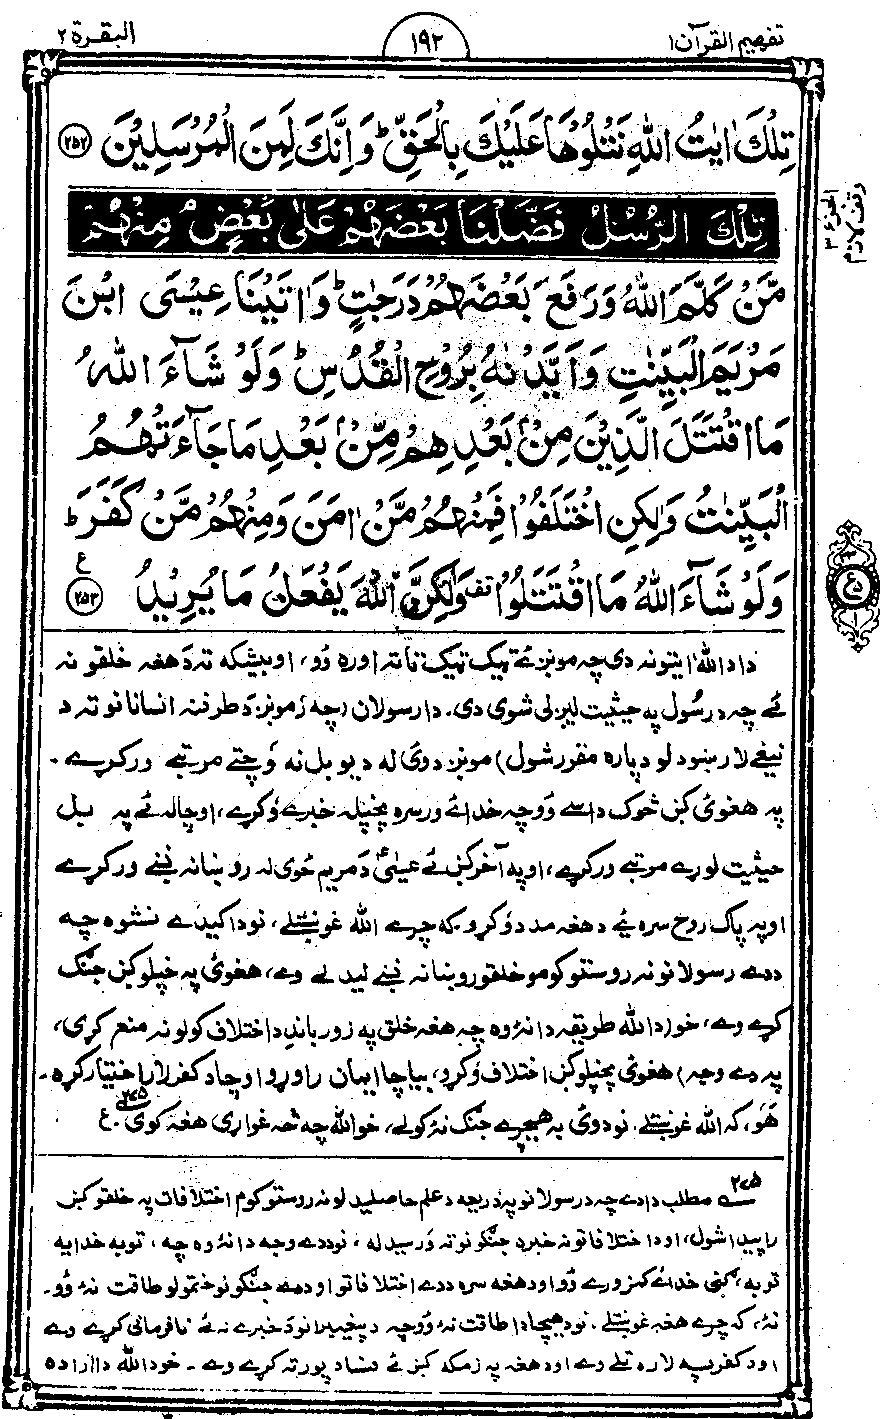 تفهيم القرآن ۱
۱۹۲
البقرة ۲
تِلْكَ اٰيٰتُ اللّٰهِ نَتْلُوْهَا عَلَيْكَ بِالْحَقِّ ؕ وَاِنَّكَ لَمِنَ الْمُرْسَلِيْنَ ﴿۲۵۲﴾
تِلْكَ الرُّسُلُ فَضَّلْنَا بَعْضَهُمْ عَلٰى بَعْضٍ ۘ مِنْهُمْ
مَّنْ كَلَّمَ اللّٰهُ وَرَفَعَ بَعْضَهُمْ دَرَجٰتٍ ؕ وَاٰتَيْنَا عِيْسَى ابْنَ
مَرْيَمَ الْبَيِّنٰتِ وَاَيَّدْنٰهُ بِرُوْحِ الْقُدُسِ ؕ وَلَوْ شَآءَ اللّٰهُ
مَا اقْتَتَلَ الَّذِيْنَ مِنْۢ بَعْدِهِمْ مِّنْۢ بَعْدِ مَا جَآءَتْهُمُ
الْبَيِّنٰتُ وَلٰكِنِ اخْتَلَفُوْا فَمِنْهُمْ مَّنْ اٰمَنَ وَمِنْهُمْ مَّنْ كَفَرَ ؕ
وَلَوْ شَآءَ اللّٰهُ مَا اقْتَتَلُوْا ۟ وَلٰكِنَّ اللّٰهَ يَفْعَلُ مَا يُرِيْدُ ﴿۲۵۳﴾ ع
دا د الله ايتونه دی چه مونږ ئے ټيک ټيک تا ته اوره وو، او بيشکه ته د هغه خلقو نه
ئے چه د رسول په حيثيت ليږلی شوی دی. دا رسولان (چه زمونږ د طرفنه انسانانو ته د
نيغے لار ښودلو دپاره مقرر شول) مونږ دوئ له د يو بل نه وچتے مرتبے ورکړے.
په هغوئ کښ څوک داسے وو چه خدائے ورسره پخپله خبرے وکړے، او چاله ئے په بل
حيثيت لورے مرتبے ورکړے، او په آخر کښ ئے عيسٰی د مريم ځوی له روښانه نښے ورکړے
او په پاک روح سره ئے د هغه مدد وکړو. که چرے الله غوښتلے، نو دا کيدے نشوه چه
ددے رسولانو نه روستو کومو خلقو روښانه نښے ليدلے وے، هغوئ په خپلو کښ جنګ
کړے وے، خو (د الله طريقه دا نۀ وه چه هغه خلق په زور باندِ د اختلاف کولو نه منع کړی،
په دے وجه) هغوئ پخپلو کښ اختلاف وکړو، بيا چا ايمان راوړو او چا د کفر لار اختيار کړه.
هَو، که الله غوښتلے، نو دوئ به هيچرے جنګ نۀ کولے، خو الله چه څه غواړی هغه کوی ۲۷۵. ع
۲۷۵ مطلب دا دے چه د رسولانو په ذريعه د علم حاصليدلو نه روستو کوم اختلافات په خلقو کښ
راپيدا شول، او د اختلافاتو نه خبره جنګونو ته ورسيدله، نو ددے وجه دا نۀ وه چه، توبه خدايه
توبه، ګنی خدائے کمزورے وو او د هغه سره ددے اختلافاتو او دے جنګونو ختمولو طاقت نۀ وو.
نۀ، که چرے هغه غوښتلے. نو د هيچا دا طاقت نۀ وو چه د پيغمبرانو د خبرے نه ئے نافرمانی کړے وے
او د کفر په لاره تلے وے او د هغه په زمکه کښ ئے فساد پورته کړے وے - خو د الله دا اراده
الجزء ۳
وقف لازم
ع